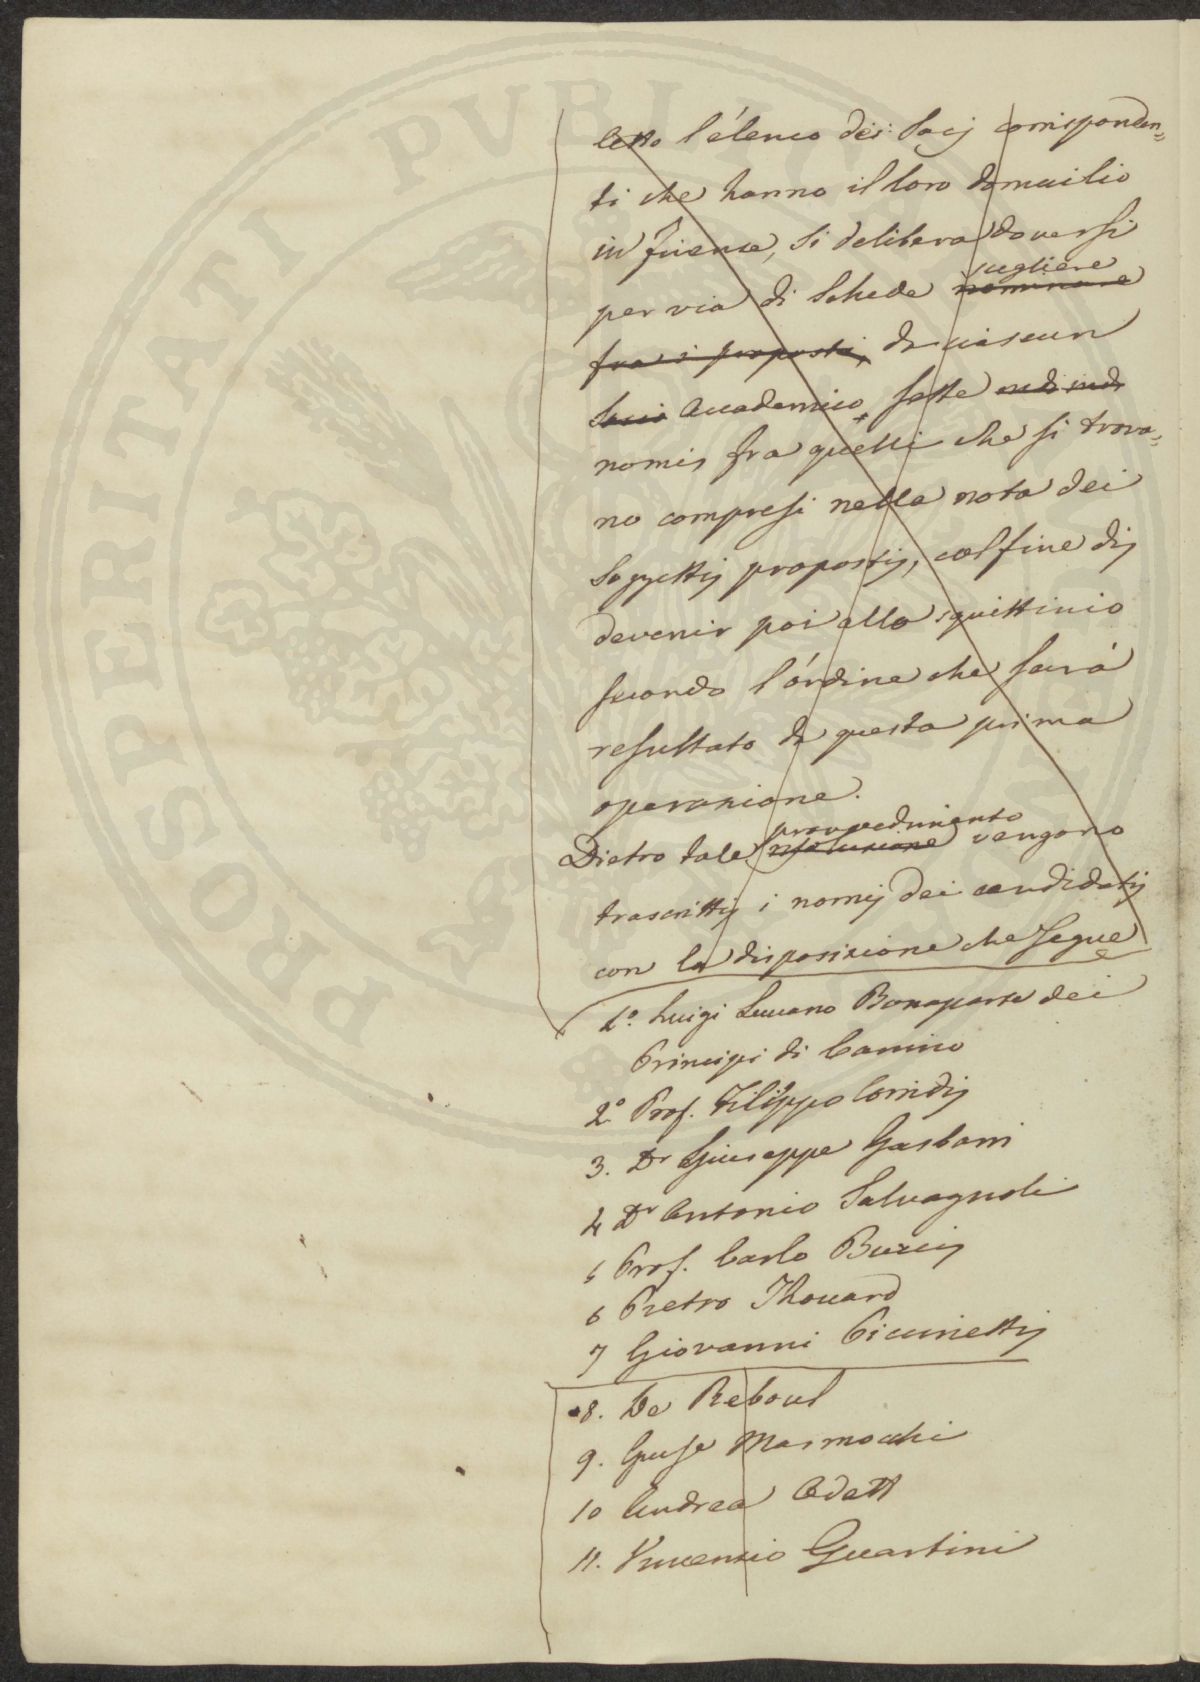 PROSPERITATI PUBLICAE
Letto l'élenco dei Socj corrisponden=
ti che hanno il loro domicilio
in firenze, si delibera doversi
per via di Schede scegliere
nominare
fra i proposti, da ciascun
Socio Accademico, sette
nomi fra quelli che si trova=
no compresi nella nota dei
Soggetti proposti, col fine di
devenir poi allo squittinio
secondo l'órdine che sará
resultato da questa prima
operazione.
Dietro tale provvedimento vengono
risoluzione
trascritti i nomi dei candidati
con la disposizione che segue
1.º Luigi Luciano Bonaparte dei
Principi di Canino
2.º Prof. Filippo Corridi
3. Dr Giuseppe Gasbarri
4 Dr Antonio Salvagnoli
5 Prof. Carlo Burci
6 Pietro Thouard
7 Giovanni Piccinetti
8. De Reboul
9. Giuse Marmocchi
10 Andrea
11. Vincenzio Guartini